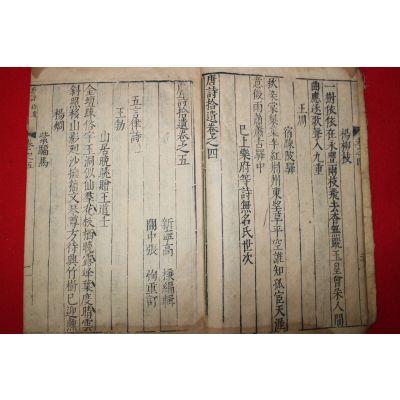 楊柳枝
一樹依依在永豐兩枝飛去杳無蹤玉皇曾采人間
曲應逐歌聲入九重
王周
宿疎陂驛
秋染棠梨葉半紅荊州東望草平空誰知孤宦天涯
意微雨蕭蕭古驛中
已上樂府等詩無名氏世次
唐詩拾遺卷之四
唐詩拾遺卷之五
新寧高 棅編輯
關中張 恂重訂
五言律詩
王勃
山居晚眺贈王道士
金壇疎俗宇玉洞似仙羣花枝棲晚露峰葉度晴雲
斜照移山影迴沙擁籀文琴尊方待興竹樹已迎曛
楊炯
紫騮馬